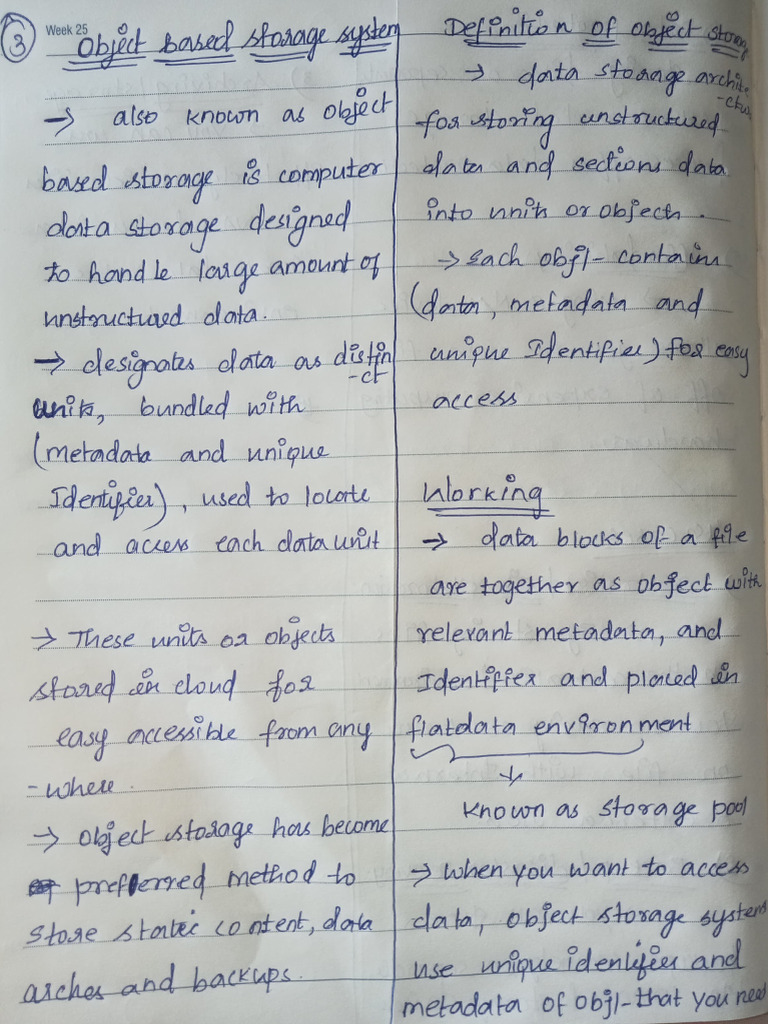 3
Week 25
Object Based storage system
→ also known as object
based storage is computer
data storage designed
to handle large amount of
unstructured data.
→ designates data as distin
-ct
units, bundled with
(metadata and unique
Identifier), used to locate
and access each data unit
→ These units or objects
stored in cloud for
easy accessible from any
-where.
→ object storage has become
preferred method to
store static content, data
arches and backups.
Definition of object storage
→ data storage archite
-cture
for storing unstructured
data and sections data
into units or objects.
→ Each obj/- contains
(data, metadata and
unique Identifier) for easy
access
Working
→ data blocks of a file
are together as object with
relevant metadata, and
Identifier and placed in
flatdata environment
↓
known as storage pool
→ when you want to access
data, object storage system
use unique identifier and
metadata of obj/- that you need